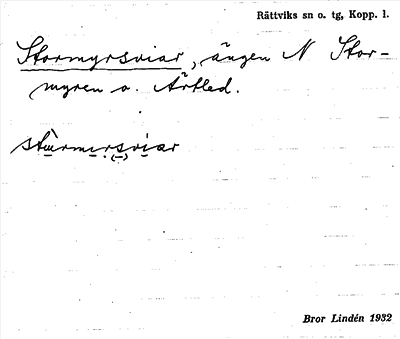 Rättviks sn o. tg, Kopp. l.
Stormyrsviar, ängen N Stor-
myren o. Ärtled.
stùrmırsviar
Bror Lindén 1932